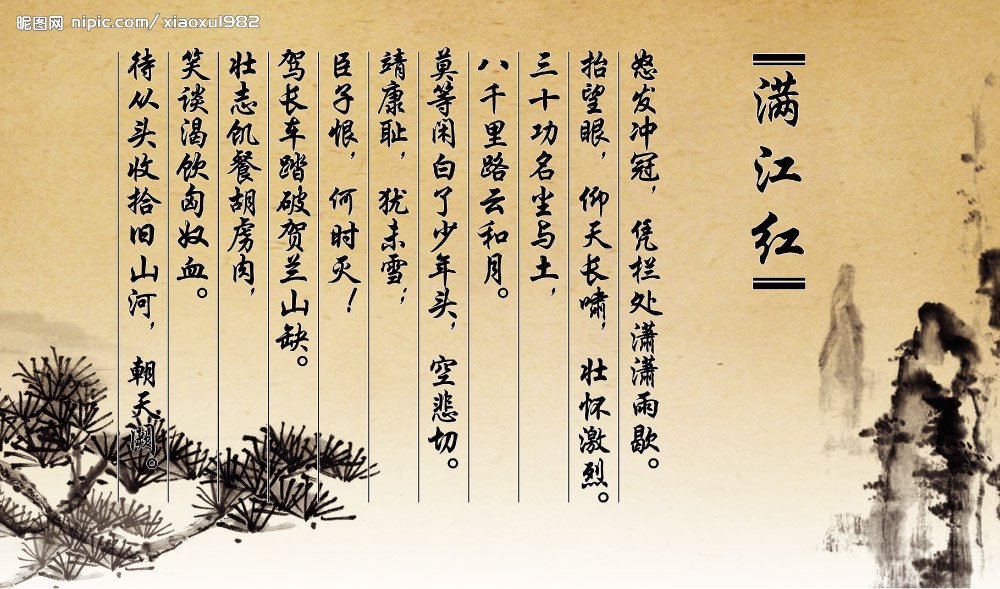 昵图网 nipic.com/xiaoxu1982
满江红
怒发冲冠，凭栏处潇潇雨歇。
抬望眼，仰天长啸，壮怀激烈。
三十功名尘与土，
八千里路云和月。
莫等闲白了少年头，空悲切。
靖康耻，犹未雪；
臣子恨，何时灭！
驾长车踏破贺兰山缺。
壮志饥餐胡虏肉，
笑谈渴饮匈奴血。
待从头收拾旧山河，朝天阙。